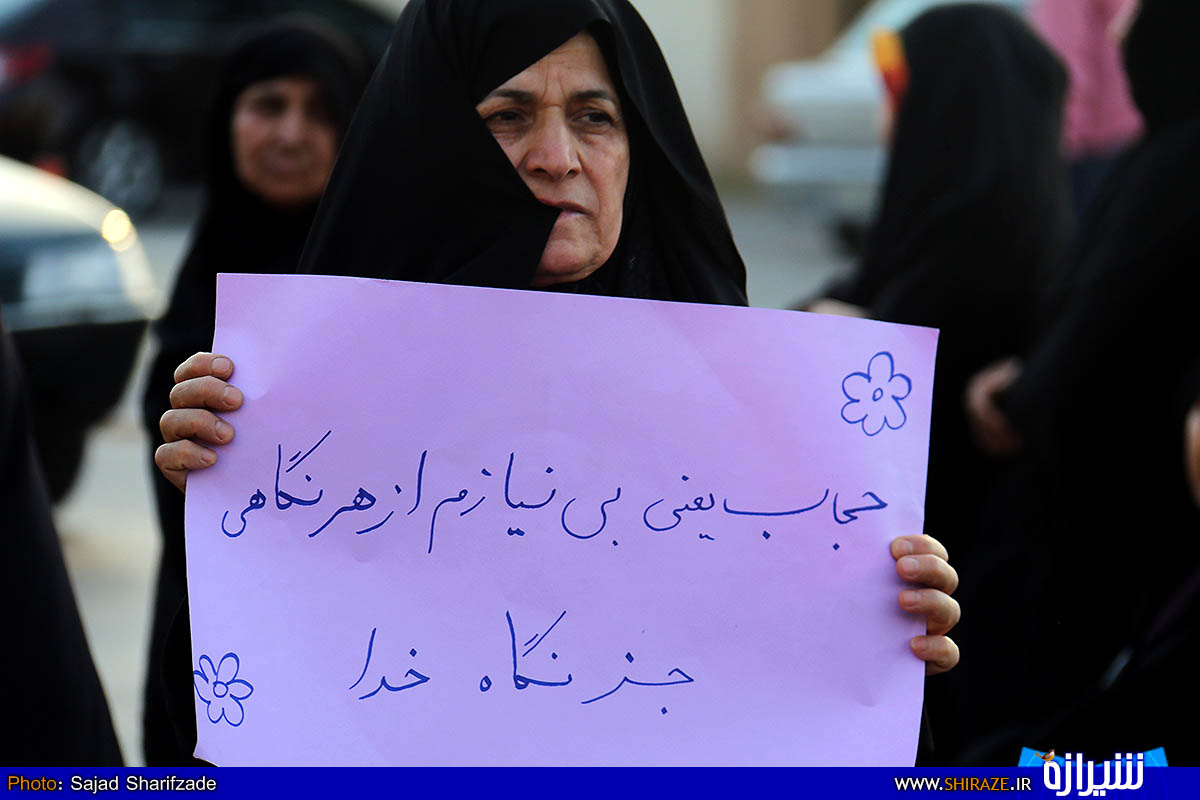 حجاب یعنی بی نیازم از هر نگاهی
جز نگاه خدا
Photo: Sajad Sharifzade
WWW.SHIRAZE.IR شیرازه